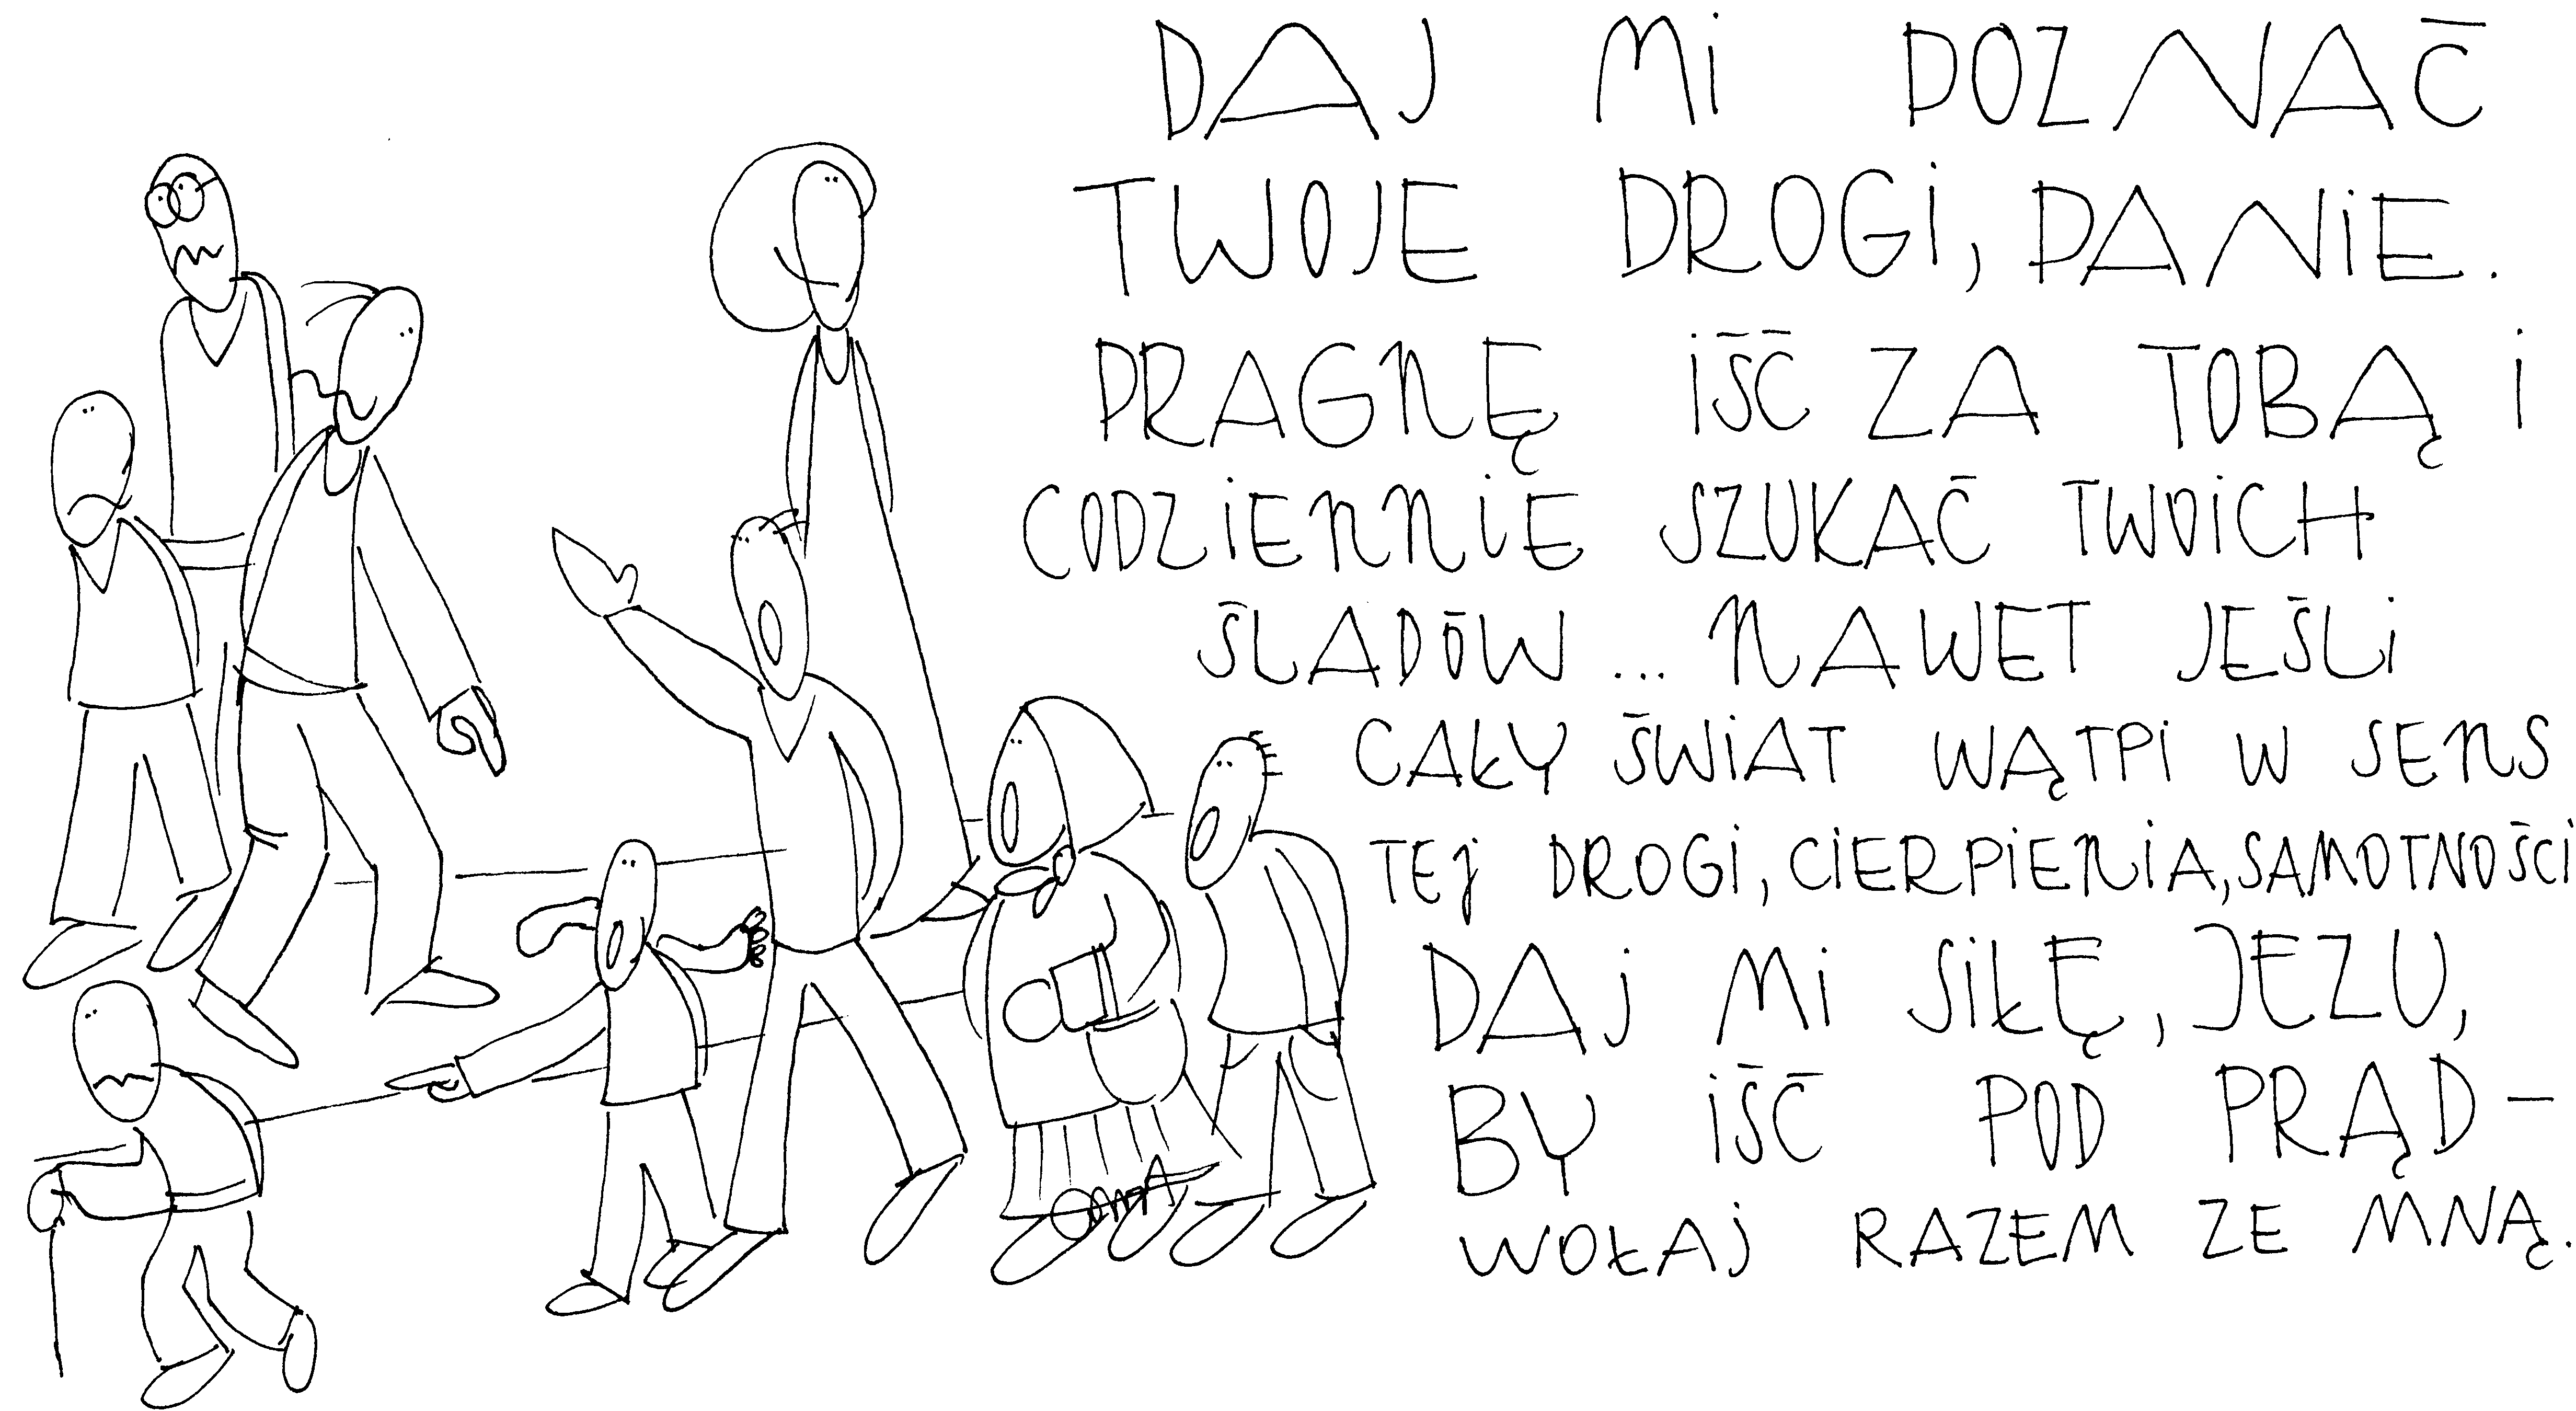 DAJ MI POZNAĆ
TWOJE DROGI, PANIE.
PRAGNĘ IŚĆ ZA TOBĄ I
CODZIENNIE SZUKAĆ TWOICH
ŚLADÓW... NAWET JEŚLI
CAŁY ŚWIAT WĄTPI W SENS
TEJ DROGI, CIERPIENIA, SAMOTNOŚCI
DAJ MI SIŁĘ, JEZU,
BY IŚĆ POD PRĄD -
WOŁAJ RAZEM ZE MNĄ.